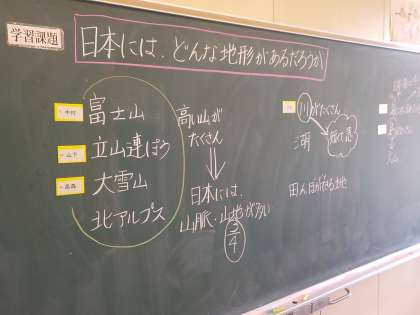 学習課題
日本には、どんな地形があるだろうか
中村
富士山
山下
立山連ぽう
高森
大雪山
北アルプス
高い山が
たくさん
日本には、
山脈・山地が多い
3
4
川がたくさん
短くて急
湖
田んぼができる土地